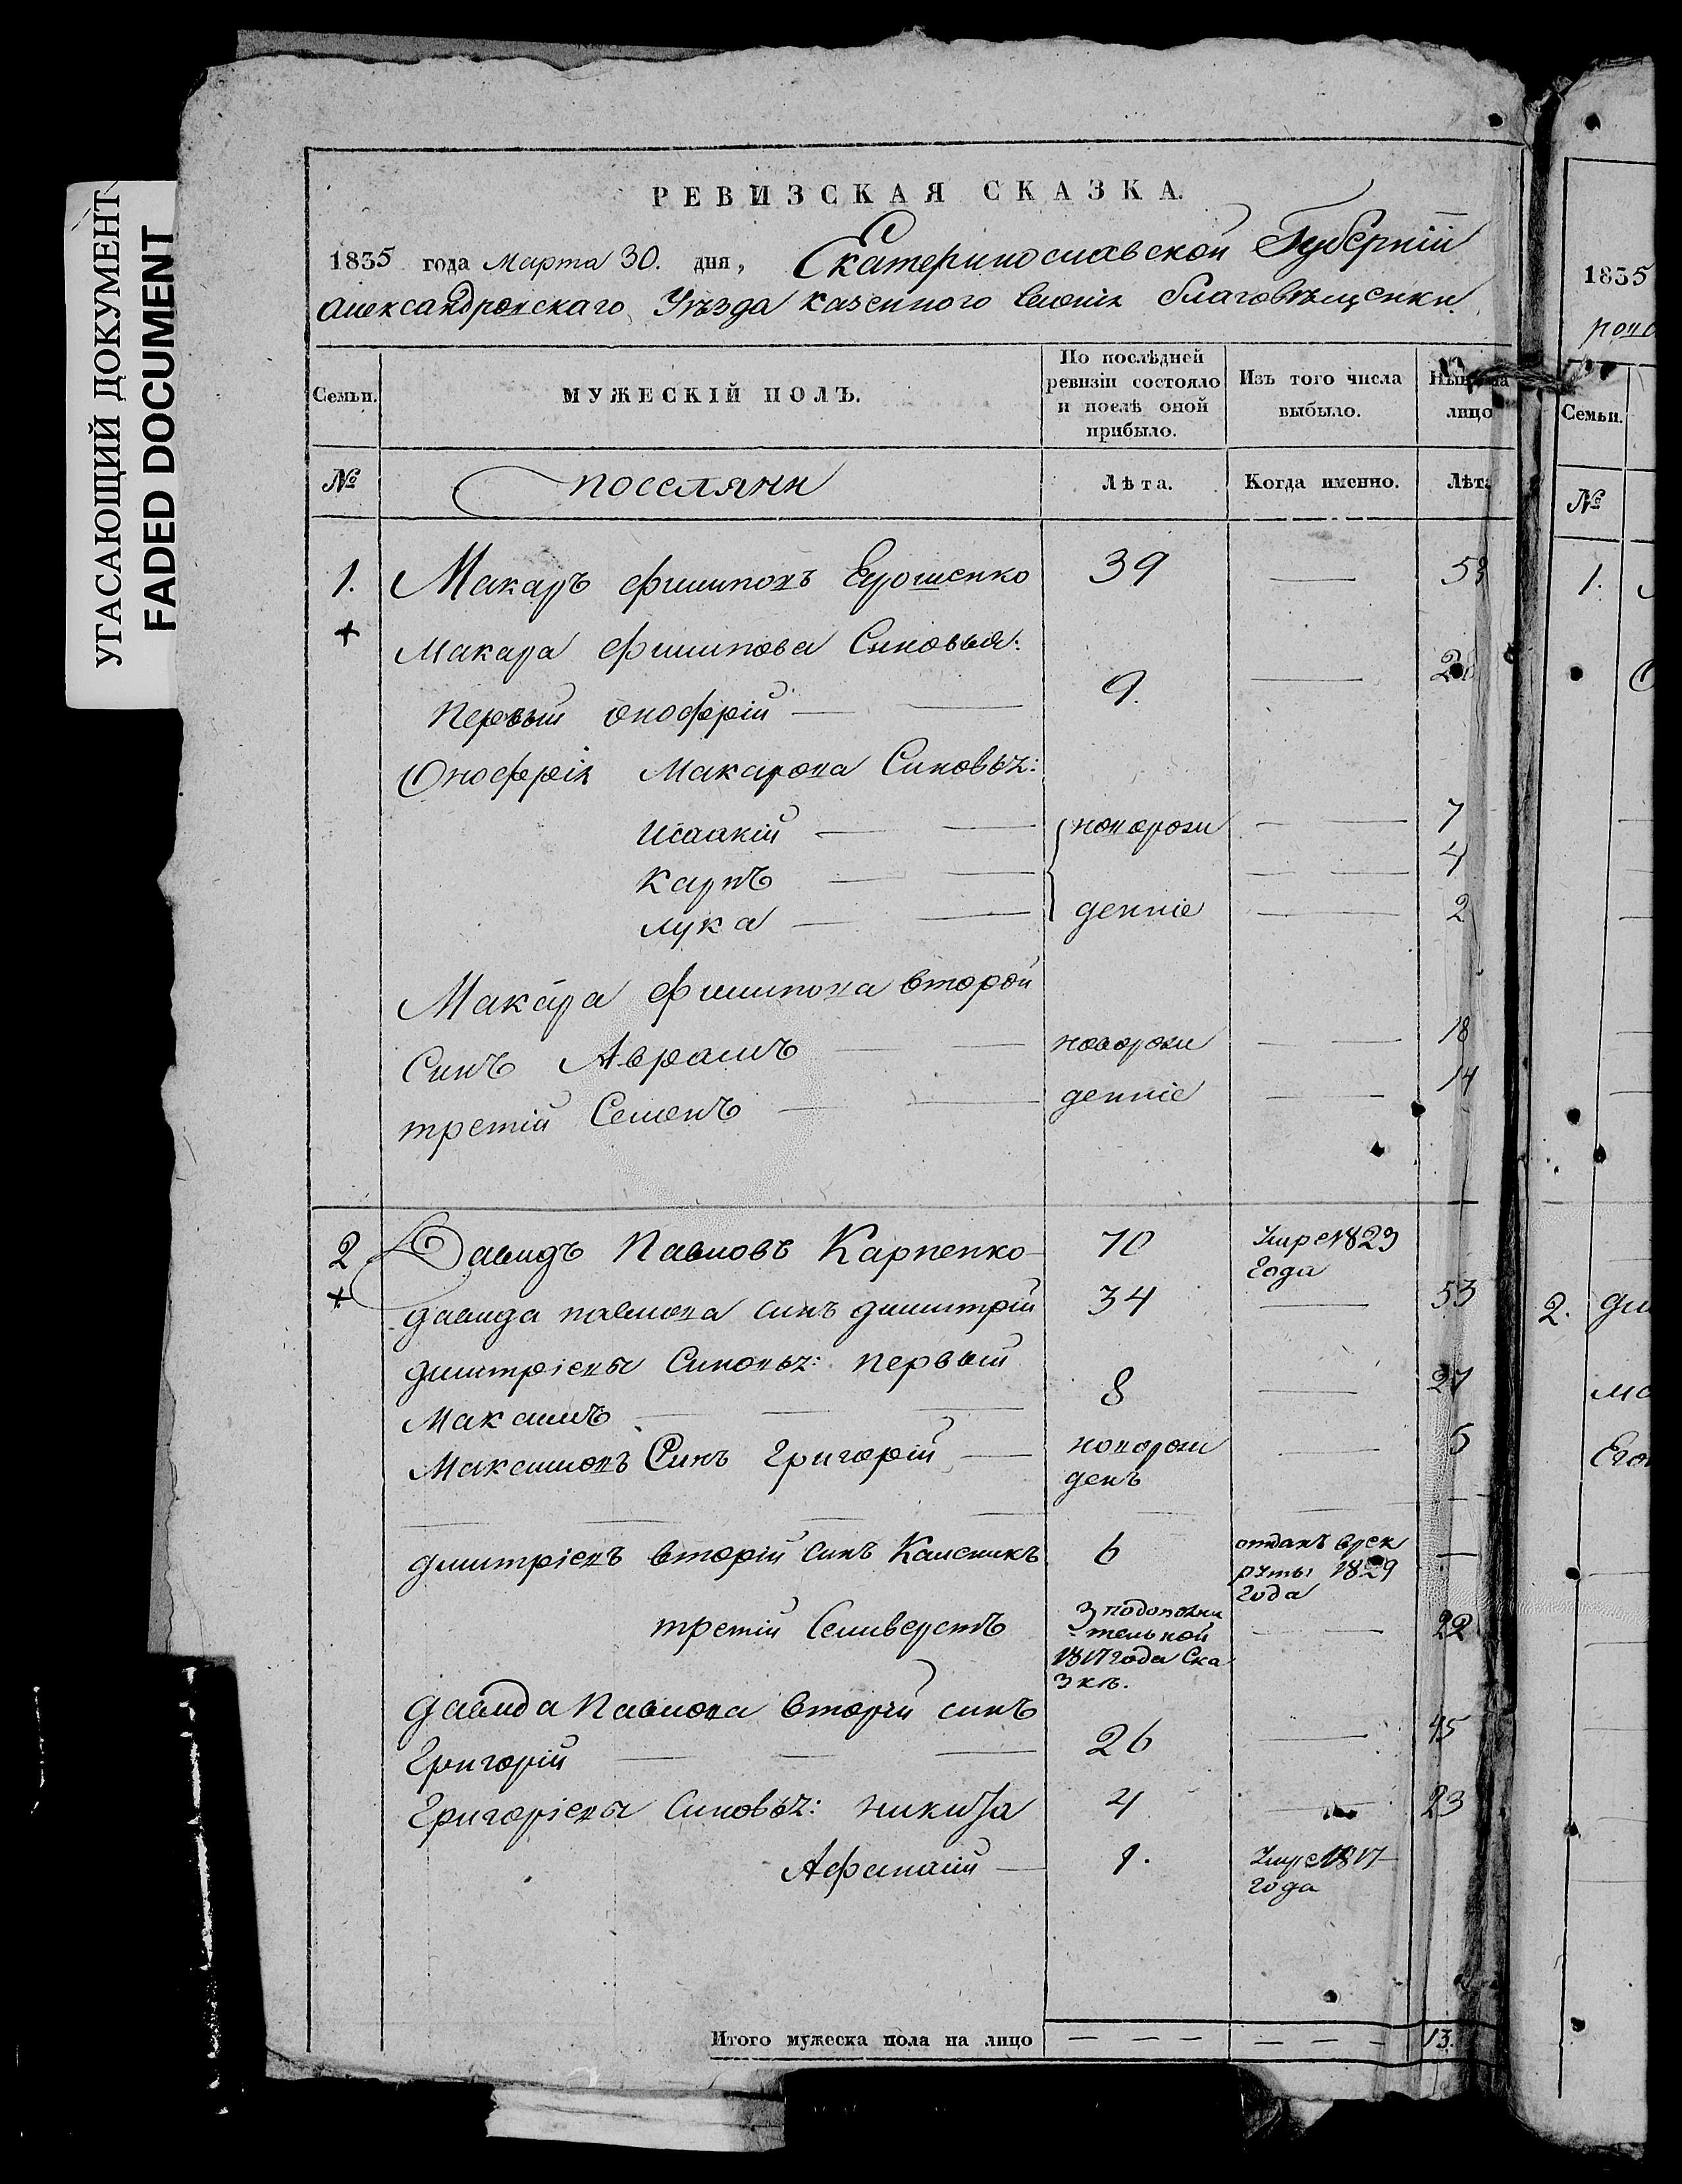 УГАСАЮЩИЙ ДОКУМЕНТ
FADED DOCUMENT
РЕВИЗСКАЯ СКАЗКА.
1835 года Марта 30. дня, Екатеринославской Губернiи
Александровскаго Уѣзда казенного селенiя благовѣщенки.
Семьи. МУЖЕСКIЙ ПОЛЪ. По послѣдней ревизiи состояло и послѣ оной прибыло. Изъ того числа выбыло. лицо
№ поселяни Лѣта. Когда именно. Лѣта
1. Макаръ филиповъ Ерошенко 39 —
+ Макара филипова Синовья:
первый Онофрiй — — 9. —
Онофрiя Макарова Синовья:
Исаакiй — — новорож — — 7
Карпъ — — — — 4
лука — — деннiе — 2
Макара филипова второй
Синъ Аврамъ — — новорож — — 18
третiй Семенъ — — деннiе — 14
2 Давидъ Павловъ Карпенко 70 Умре 1823
Года
+ давида павлова синъ димитрiй 34 — 53
димитрiевы Синовья: первый
Максимъ — — — 8 — 27
Максимовъ Синъ Григорiй — новорож — 5
денъ
димитрiевъ вторiй синъ Каленикъ 6 отданъ врек —
руты 1829
Года
третiй Селиверстъ 3 подополни — — 22
тельной
1817 года Ска
зкѣ.
давида Павлова вторiй синъ
Григорiй — — — 26 — 45
Григорiевы Синовья: никита 4 — 23
Афанасiй — 1. Умре 1817
года
Итого мужеска пола на лицо — — — — — — 13.
1835
Семьи.
№
1.
2.